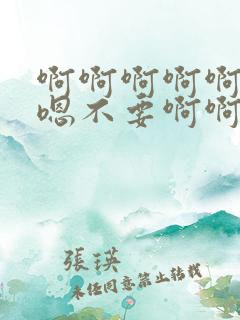 啊啊啊啊啊
嗯不要啊啊
張瑛
未任同意禁止转载